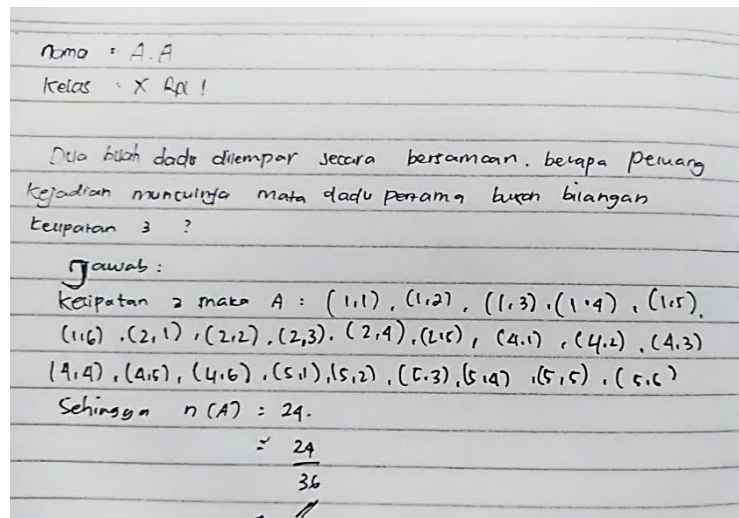 Nama : A.A
Kelas : X RPL 1
Dua buah dadu dilempar secara bersamaan. berapa peluang
kejadian munculnya mata dadu pertama bukan bilangan
kelipatan 3 ?
Jawab :
kelipatan 3 maka A : (1,1), (1,2), (1,3), (1,4), (1,5),
(1,6), (2,1), (2,2), (2,3), (2,4), (2,5), (4,1), (4,2), (4,3)
(4,4), (4,5), (4,6), (5,1), (5,2), (5,3), (5,4), (5,5), (5,6)
Sehingga n (A) : 24.
= 24
36